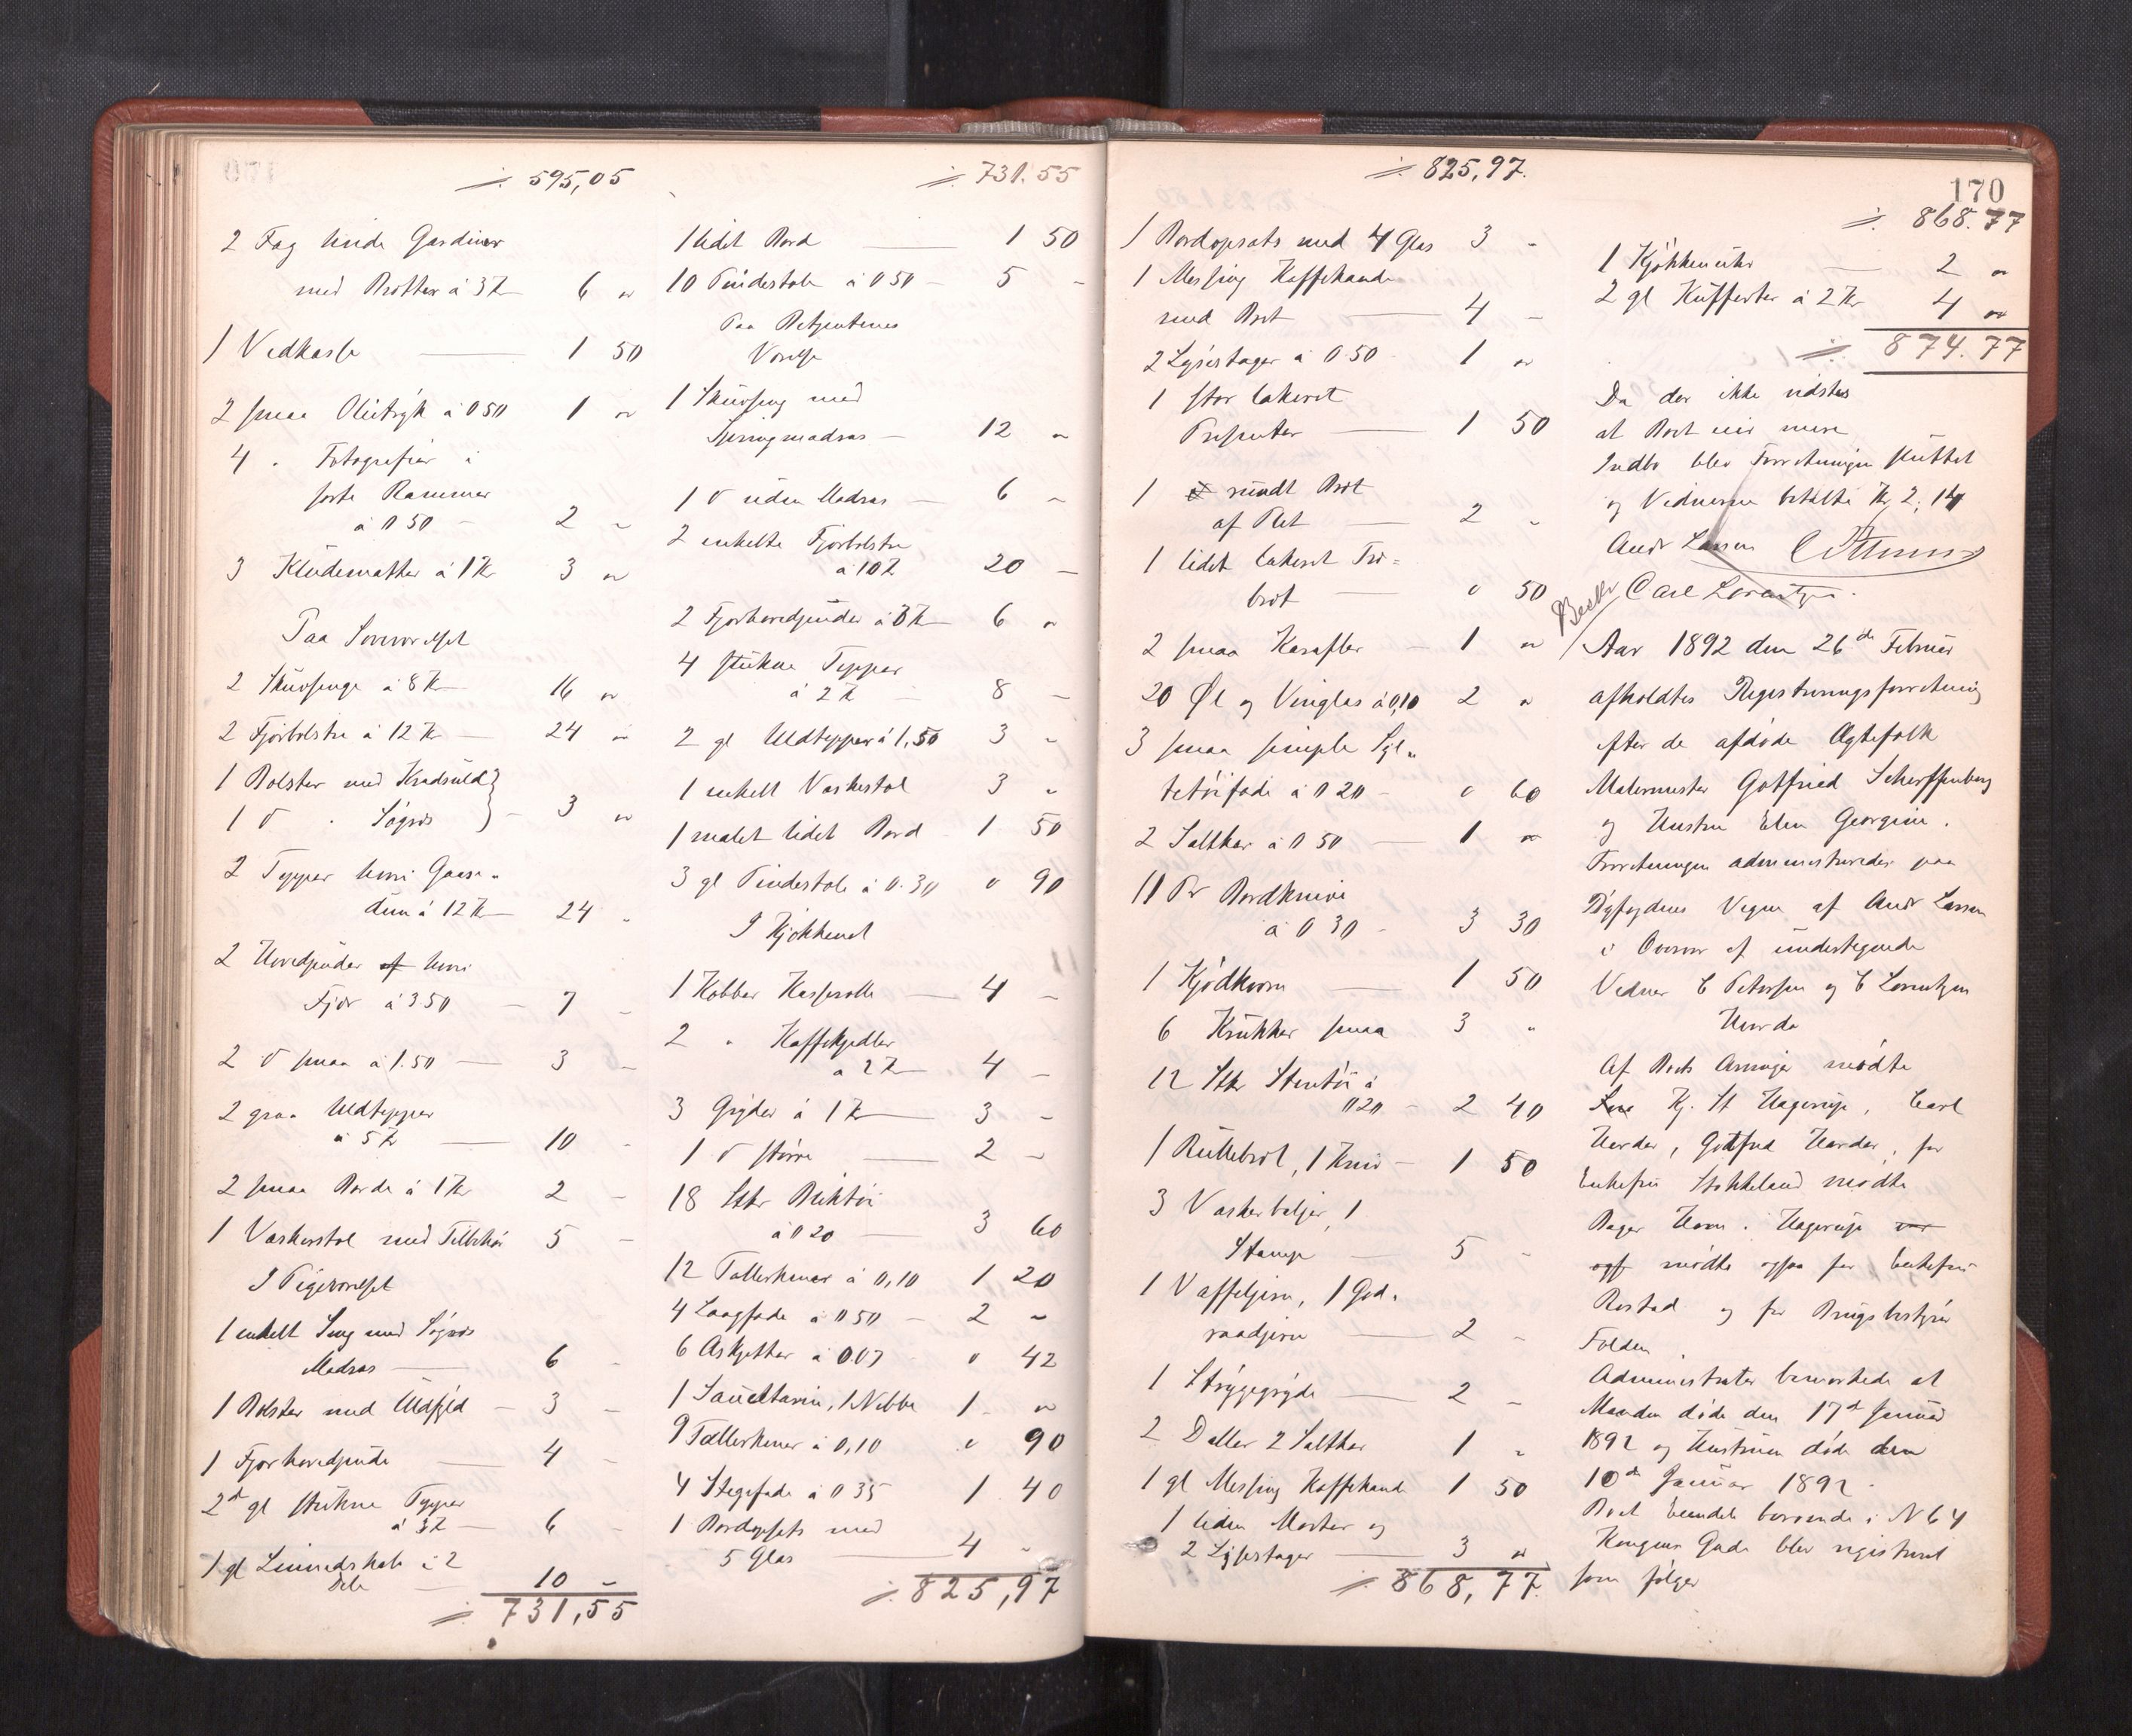 595,05
2 Fag hvide Gardiner
med Bretter à 3 Kr 6 "
1 Vedkasse 1 50
2 smaa Olietryk à 0 50 1 "
4 " Fotografier i
sorte Rammer
à 0 50 2 "
3 Kludematter à 1 Kr 3 "
Paa Soveværelset
2 Skuvsenge à 8 Kr 16 "
2 Fjørbolstre à 12 Kr 24 "
1 Bolster med Kradsuld
1 d " Søgræs 3 "
2 Tepper hvori Gaase-
dun à 12 Kr 24 "
2 Hovedpuder hvori
Fjør à 3 50 7 "
2 d smaa à 1.50 3 "
2 graa Uldtepper
à 5 Kr 10 "
2 smaa Borde à 1 Kr 2 "
1 Vaskerstol med Tilbehør 5 "
I Pigeværelset
1 enkelt Seng med Søgræs
Madras 6 "
1 Bolster med Uldfyld 3 "
1 Fjørhovedpude 4 "
2 gl stukne Tepper
à 3 Kr 6 "
1 gl Linnedskab i 2
Dele 10 "
731,55
731.55
1 lidet Bord 1 50
10 Pindestole à 0 50 5 "
Paa Betjentenes
Værelse
1 Skuvseng med
Springmadras 12 "
1 d uden Madras 6 "
2 enkelte Fjørbolstre
à 10 Kr 20 "
2 Fjørhovedpuder à 3 Kr 6 "
4 stukne Tepper
à 2 Kr 8 "
2 gl Uldtepper à 1,50 3 "
1 enkelt Vaskestol 3 "
1 malet lidet Bord 1 50
3 gl Pindestole à 0.30 " 90
I Kjøkkenet
1 Kobber Kasserolle 4 "
2 " Kaffekjedler
à 2 Kr 4 "
3 Gryder à 1 Kr 3 "
1 d større 2 "
18 Stkr Bliktøi
à 0 20 3 60
12 Tallerkener à 0,10 1 20
4 Laagfade à 0 50 2 "
6 Askjetter à 0.07 " 42
1 Sauceterin, 1 Nibbe 1 "
9 Tallerkener à 0,10 " 90
4 Stegefade à 0 35 1 40
1 Bordopsats med
5 Glas 4 "
825,97
825,97.
170
1 Bordopsats med 4 Glas 3 "
1 Messing Kaffekande
med Bret 4 "
2 Lysestager à 0 50 1 "
1 stor lakeret
Presenter 1 50
1 rundt Bret
af Plet 2 "
1 lidet lakeret Træ=
bret " 50
2 smaa Karafler 1 "
20 Øl og Vinglas à 0,10 2 "
3 smaa simple Syl-
tetøifade à 0 20 " 60
2 Saltkar à 0 50 1 "
11 Pr Bordknive
à 0 30 3 30
1 Kjødkvern 1 50
6 Krukker smaa 3 "
12 Stkr Stentøi à
0 20 2 40
1 Rullebret, 1 Kniv 1 50
3 Vaskerbaljer, 1
Stampe 5 "
1 Vaffeljern, 1 God-
raadjern 2 "
1 Strygegryde 2 "
2 Daller 2 Saltkar 1 "
1 gl Messing Kaffekande 1 50
1 liden Morter og
2 Lysestager 3 "
868,77.
868.77
1 Kjøkkenuhr 2 "
2 gl Kufferter à 2 Kr 4 "
874.77
Da der ikke vidstes
at Boet eier mere
Indbo blev Forretningen sluttet
og Vidnerne betalte Kr 2,14
Andr Larsen
Carl Lorentzen.
Beskr
Aar 1892 den 26de Februar
afholdtes Registreringsforretning
efter de afdøde Ægtefolk
Malermester Gotfried Scherffenberg
og Hustru Elen Georgine.
Forretningen administreredes paa
Byfogdens Vegne af Andr Larsen
i Overvær af undertegnede
Vidner C Petersen og C Lorentzen
Af Boets Arvinger mødte
Kj. St Hagerup, Carl
Harder, Gotfred Harder, for
Enkefru Stokkeland mødte
Bager Hagerup
mødte ogsaa for Enkefru
Rostad og for Brugsbestyrer
Folden
Administrator bemærkede at
Manden døde den 17de Januar
1892 og Hustruen døde den
10de Januar 1892.
Boet beroende i N 64
Kongens Gade blev registreret
som følger